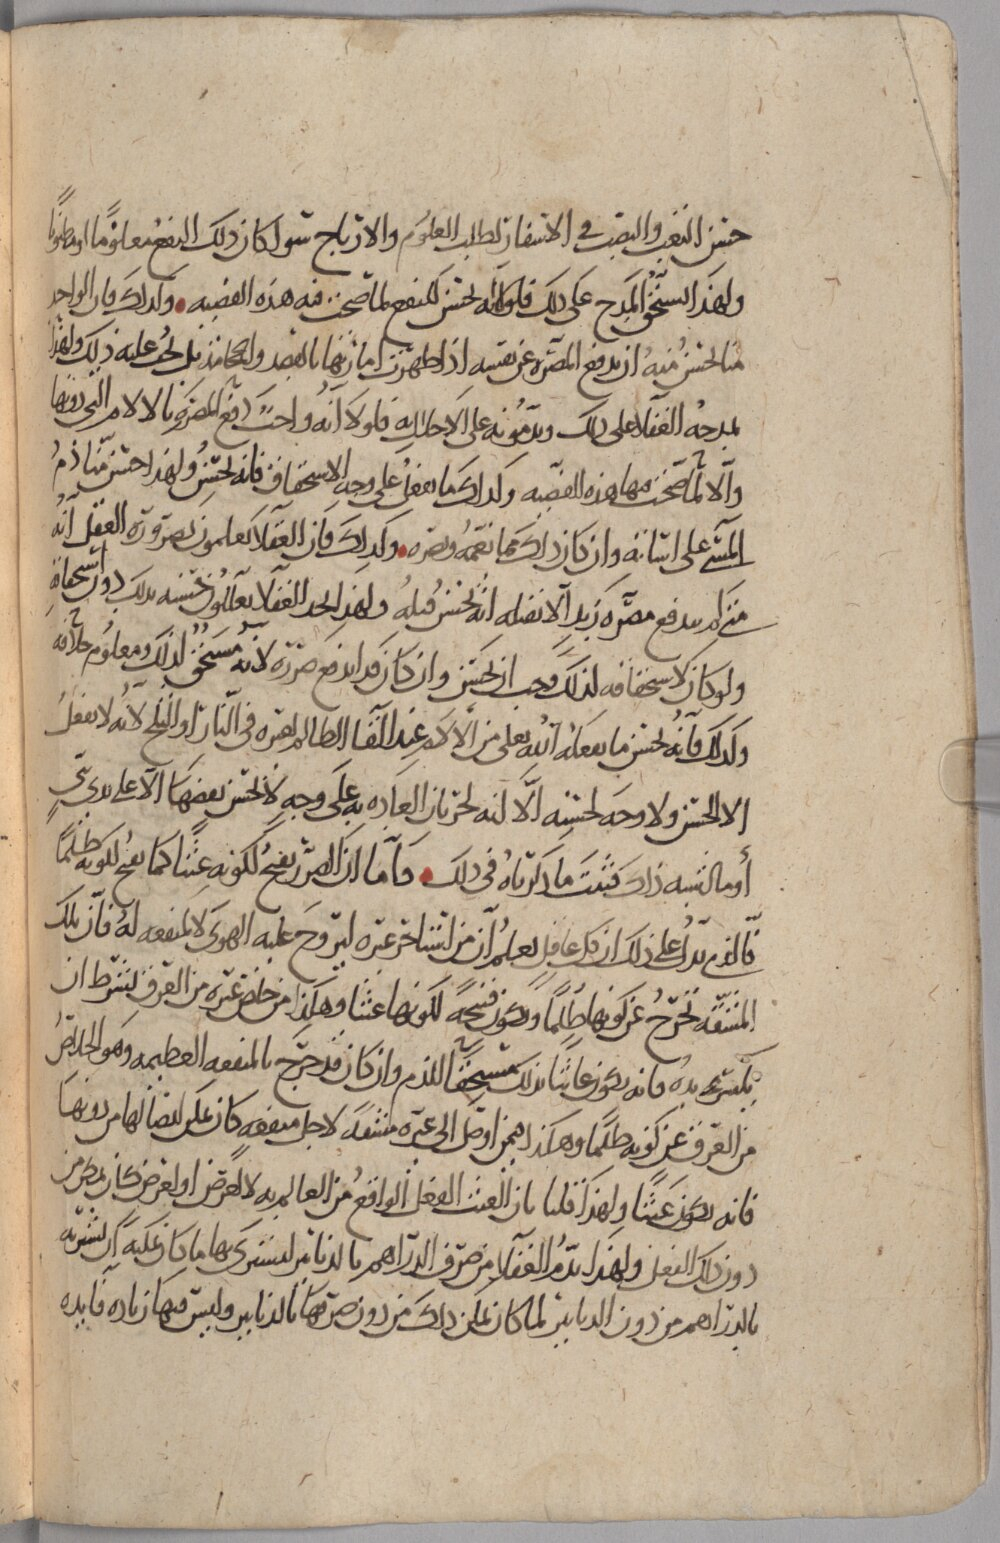 حسن التعب والنصب في الاسفار لطلب العلوم والارباح سوا كان ذلك النفع معلومًا او مظنونًا
ولهذا يستحق المدح على ذلك فلولا انه يحسن للنفع لما صحت فيه هذه القضيه • وكذلك فان الواحد
منا يحسن منه ان يدفع المضره عن نفسه اذا ظهرت امارتها بالفصد والحجامه بل يجب عليه ذلك ولهذا
يمدحه العقلا على ذلك ويذمونه على الاخلال به فلولا أنه واجب دفع المضره بالالام التي دونها
والا لما صحت فيها هذه القضيه وكذلك ما يفعل على وجه الاستحقاق فانه يحسن ولهذا حسن منا ذم
المسي على اساته وان كان ذلك مما يغمه ويضره • وكذلك فان العقلا يعلمون بضرورة العقل انه
متى لم يدفع مضره زيد الا بقتله انه يحسن قتله ولهذا يجد العقلا يعللون حسنه بذلك دون استحقاقه
ولو كان لاستحقاقه لذلك وجب ان يحسن وان كان قد اندفع ضرره لانه مستحق لذلك ومعلوم خلافه
وكذلك فانه يحسن ما يفعله الله تعلى من الالام عند القا الظالم لغيره في النار او الثلج لانه لا يفعل
الا الحسن ولا وجه لحسنه الا انه لجريان العاده به على وجه لا يحسن نقضها الا على يدي نبي
أو ما اشبه ذلك فثبت ما ذكرناه في ذلك • فأما ان الضرر يقبح لكونه عبثًا كما يقبح لكونه ظلمًا
فالذي يدل على ذلك ان كل عاقل يعلم أن من استاجر غيره ليروح عليه الهوى لا لمنفعه له فان تلك
المشقه تخرج عن كونها ظلمًا وتكون قبيحه لكونها عبثًا وهكذا من خلص غيره من الغرق بشرط ان
يكسر يده فانه يكون عابثًا بذلك مستحقًا للذم وان كان قد خرج بالمنفعه العظيمه وهو الخلاص
من الغرق عن كونه ظلمًا وهكذا فيمن اوصل الى غيره مشقه لاجل منفعه كان يمكن ايصالها من دونها
فانه يكون عبثًا ولهذا قلنا بان العبث الفعل الواقع من العالم به لا لغرض او لغرض كان يمكن من
دون ذلك الفعل ولهذا يذم العقلا من صرف الدراهم بالدنانير ليشتري بها ما كان يمكنه ان يشتريه
بالدراهم من دون الدنانير لما كان يمكن ذلك من دون صرفها بالدنانير وليس فيها زياده فايده